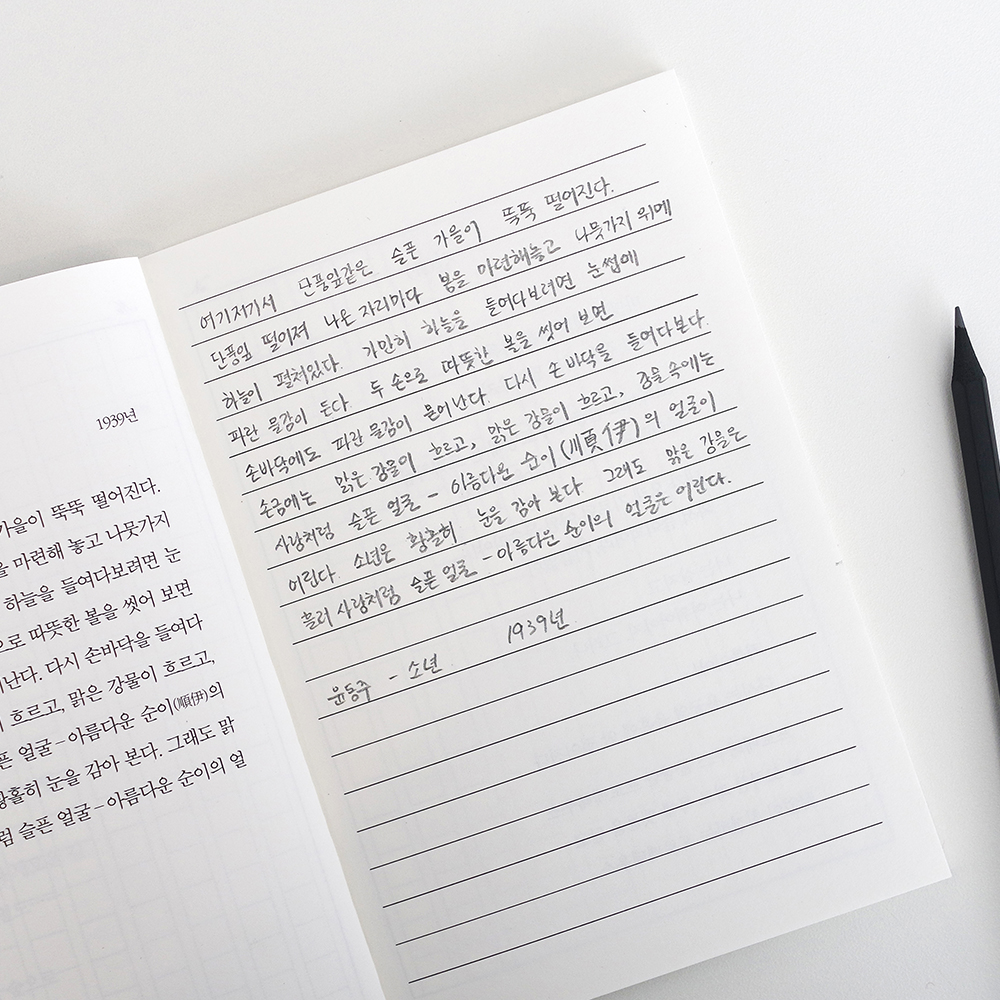 1939년
가을이 뚝뚝 떨어진다.
을 마련해 놓고 나뭇가지
하늘을 들여다보려면 눈
으로 따뜻한 볼을 씻어 보면
난다. 다시 손바닥을 들여다
흐르고, 맑은 강물이 흐르고,
픈 얼굴-아름다운 순이(順伊)의
황홀히 눈을 감아 본다. 그래도 맑
럼 슬픈 얼굴-아름다운 순이의 얼
여기저기서 단풍잎같은 슬픈 가을이 뚝뚝 떨어진다.
단풍잎 떨어져 나온 자리마다 봄을 마련해놓고 나뭇가지 위에
하늘이 펼쳐있다. 가만히 하늘을 들여다보려면 눈썹에
파란 물감이 든다. 두 손으로 따뜻한 볼을 씻어 보면
손바닥에도 파란 물감이 묻어난다. 다시 손바닥을 들여다본다.
손금에는 맑은 강물이 흐르고, 맑은 강물이 흐르고, 강물속에는
사랑처럼 슬픈 얼굴 - 아름다운 순이(順伊)의 얼굴이
어린다. 소년은 황홀히 눈을 감아 본다 그래도 맑은 강물은
흘러 사랑처럼 슬픈 얼굴 - 아름다운 순이의 얼굴은 어린다.
1939년
윤동주 - 소년.